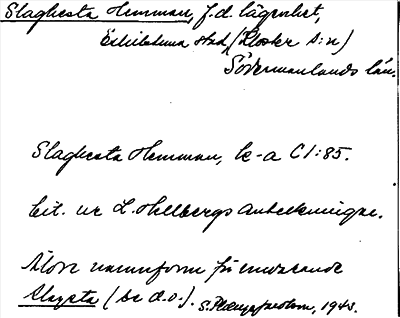 Slagbesta Hemman, f.d. lägenhet,
Eskilstuna stad, (Kloster s:n)
Södermanlands län.
Slagbesta Hemman, k-a C I:85.
Cit. ur L. Hellbergs Anteckningar.
Äldre namnform för nuvarande
Slagsta (se d.o.). S. 1943.